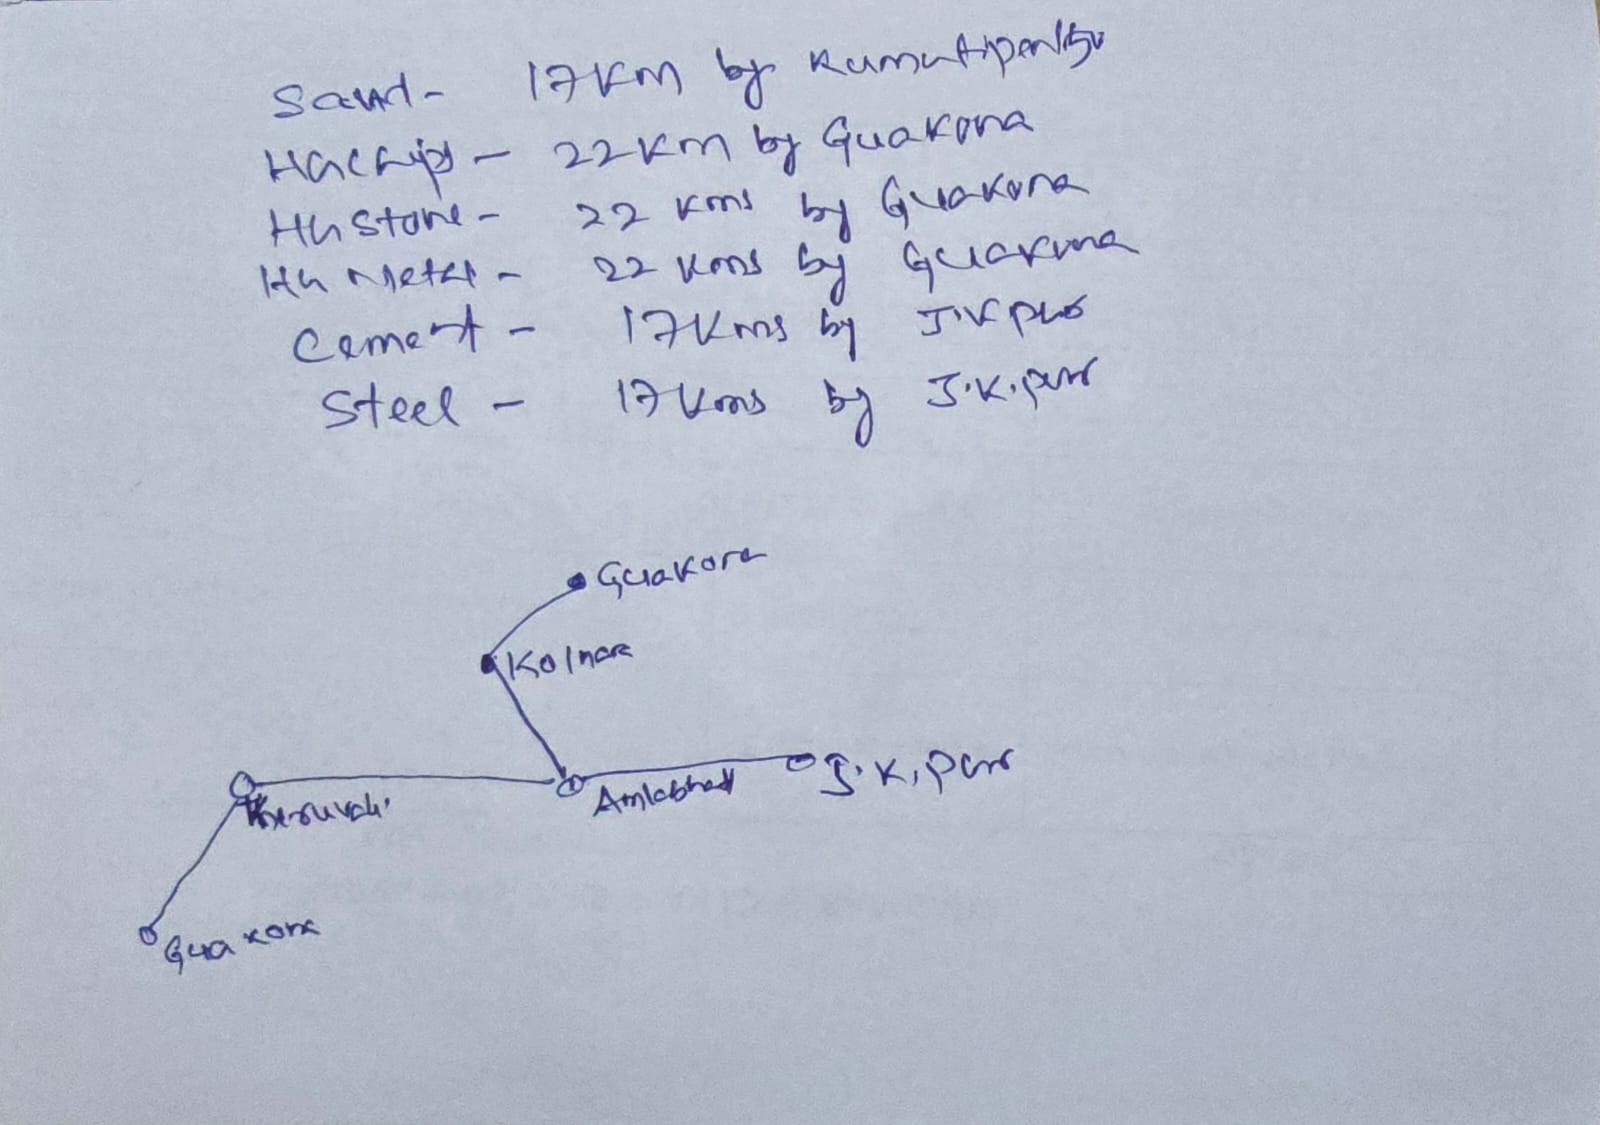 Sand - 17 KM by Kumutipenta
HG chips - 22 KM by Guakona
HG stone - 22 Kms by Guakona
HG Metal - 22 Kms by Guakona
Cement - 17 Kms by J.K pur
Steel - 17 Kms by J.K. pur
Guakona
Kolnara
Amlabhad J.K. pur
Theruvali
Guakona